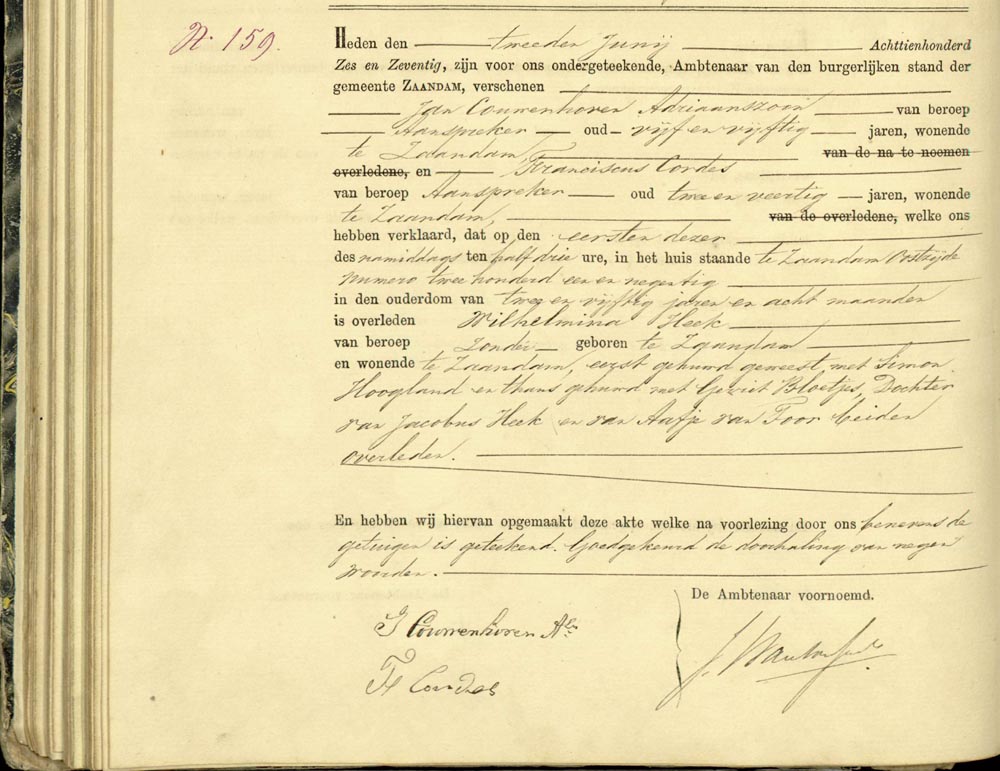 N. 159.
Heden den tweeden Junij Achttienhonderd
Zes en Zeventig, zijn voor ons ondergeteekende, Ambtenaar van den burgerlijken stand der
gemeente ZAANDAM, verschenen
Jan Couwenhoven Adriaanszoon van beroep
Aanspreker oud vijf en vijftig jaren, wonende
te Zaandam, van de na te noemen
overledene, en Franciscus Cordes
van beroep Aanspreker oud twee en veertig jaren, wonende
te Zaandam, van de overledene, welke ons
hebben verklaard, dat op den eersten dezer
des namiddags ten half drie ure, in het huis staande te Zaandam Oostzijde
numero twee honderd een en negentig
in den ouderdom van twee en vijftig jaren en acht maanden
is overleden Wilhelmina Heek
van beroep zonder geboren te Zaandam
en wonende te Zaandam, eerst gehuwd geweest met Simon
Hoogland en thans gehuwd met Gerrit Bloetjes, Dochter
van Jacobus Heek en van Aafje van Toor beiden
overleden.
En hebben wij hiervan opgemaakt deze akte welke na voorlezing door ons benevens de
getuigen is geteekend. Goedgekeurd de doorhaling van negen
woorden.
De Ambtenaar voornoemd.
J Couwenhoven Az
F Cordes